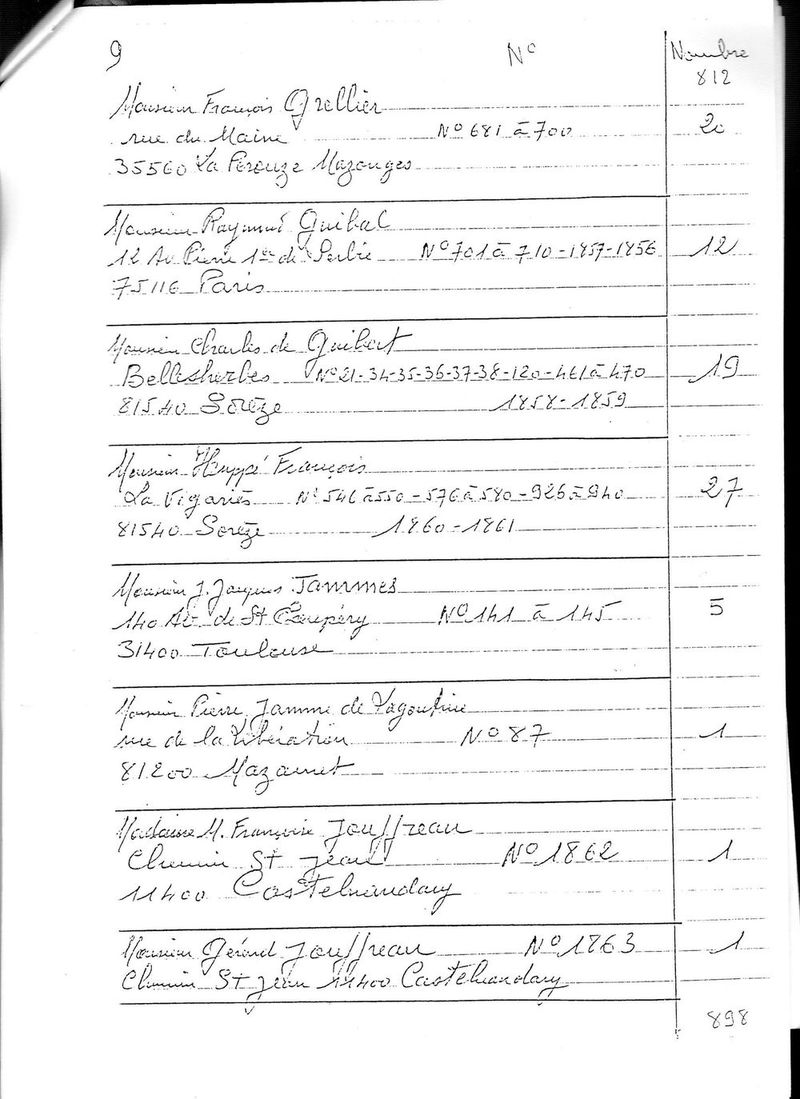 9 N° Nombre
812
Monsieur François Grellier
rue du Maine N° 681 à 700 20
35560 La Perouze Mazouges
Monsieur Raymond Guibal
12 Av Pierre 1er de Serbie N° 701 à 710 - 1857 - 1856 12
75116 Paris
Monsieur Charles de Guibert
Bellesherbes N° 21-34-35-36-37-38-120-461 à 470 19
81540 Sorèze 1858 - 1859
Monsieur Huppé François
La Vigariès N° 546 à 550 - 576 à 580 - 926 à 940 27
81540 Sorèze 1860 - 1861
Monsieur J. Jacques Jammes
140 Av. de St Exupéry N° 141 à 145 5
31400 Toulouse
Monsieur Pierre Jamme de Lagoutine
rue de la Libération N° 87 1
81200 Mazamet
Madame M. Françoise Jouffreau
Chemin St Jean N° 1862 1
11400 Castelnaudary
Monsieur Gérard Jouffreau N° 1863 1
Chemin St Jean 11400 Castelnaudary
898